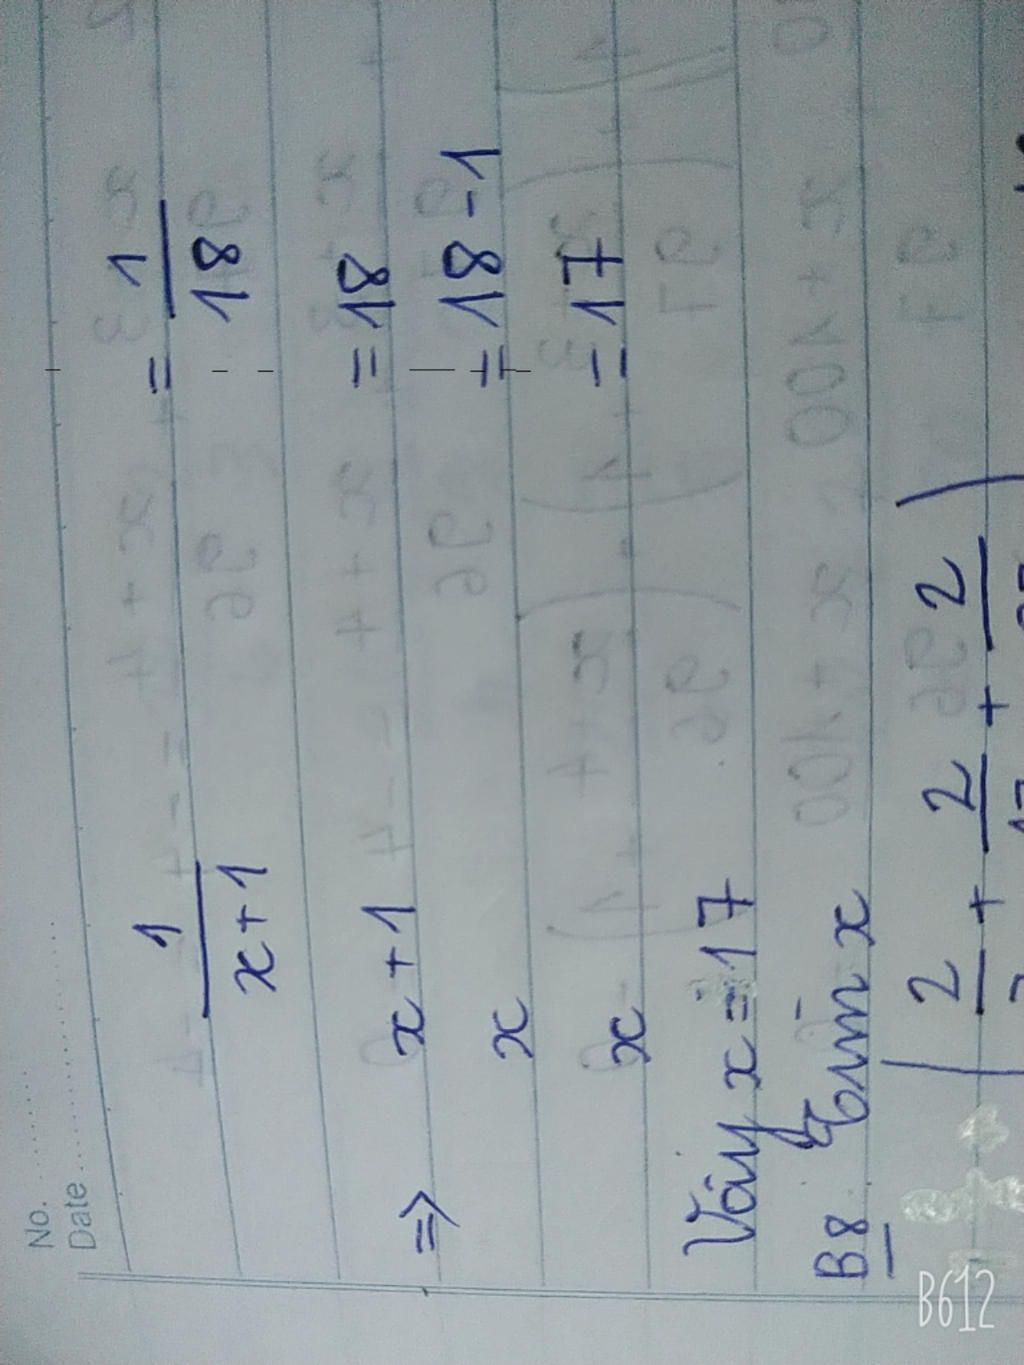 No.
Date
1/(x+1) = 1/18
⇒ x+1 = 18
x = 18-1
x = 17
Vậy x = 17
B8 Tìm x
( 2 + 2 + 2 )
B612